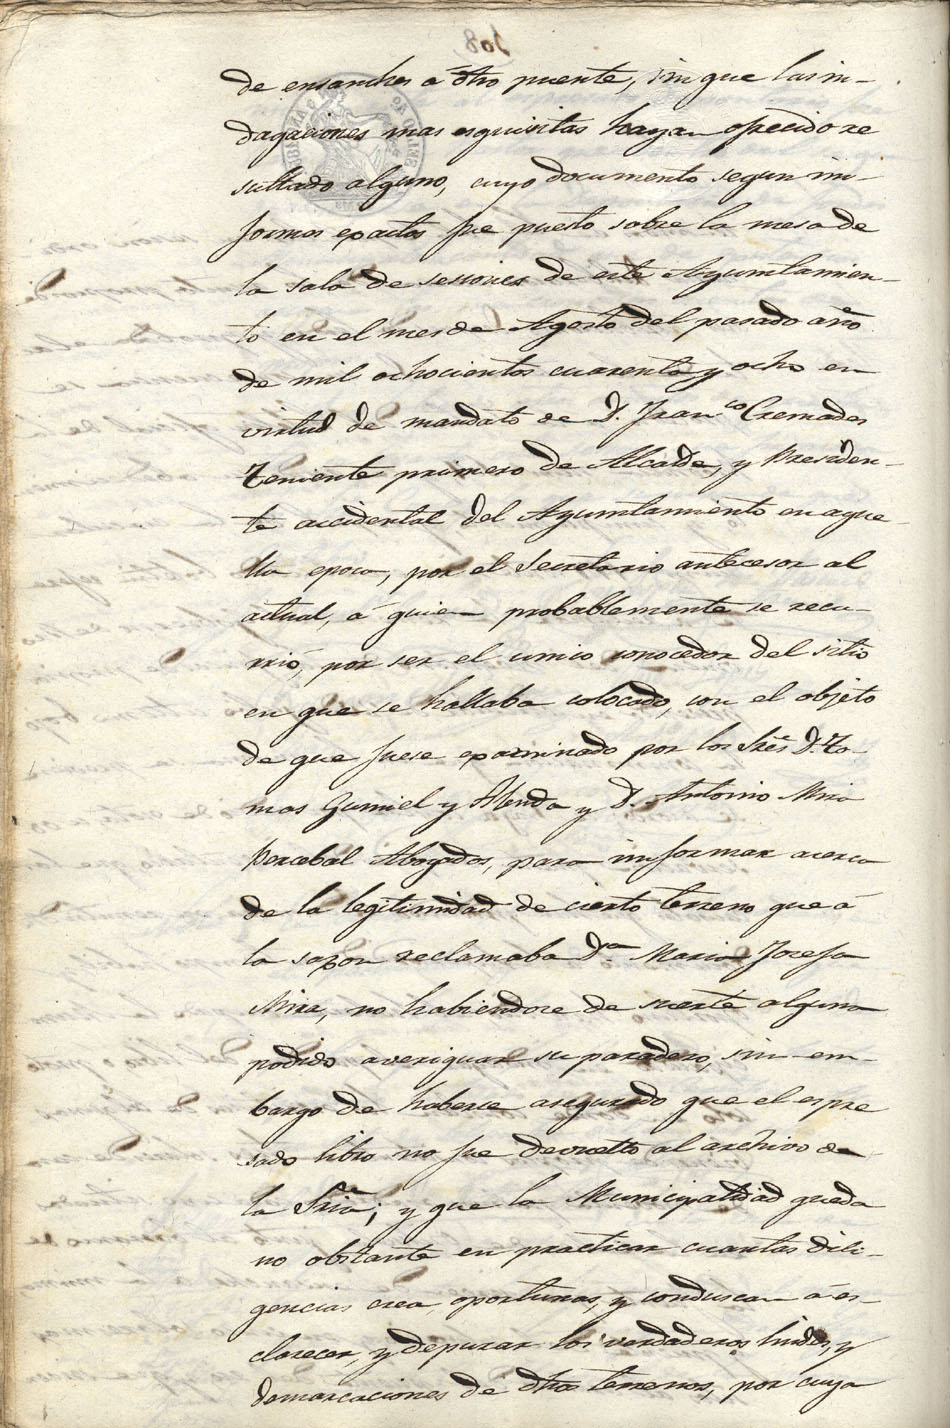 de ensanches a dho puente, sin que las in-
dagaciones mas esquisitas hayan ofrecido re
sultado alguno, cuyo documento segun in-
formes exactos fue puesto sobre la mesa de
la sala de sesiones de este Ayuntamien-
to en el mes de Agosto del pasado año
de mil ochocientos cuarenta y ocho en
virtud de mandato de D. Franco Cremades
Teniente primero de Alcalde, y Presiden-
te accidental del Ayuntamiento en aque-
lla epoca, por el Secretario antecesor al
actual, á quien probablemente se recu-
rrió, por ser el unico conocedor del sitio
en que se hallaba colocado, con el objeto
de que fuese examinado por los Sres D. To-
mas Gumiel y D. Antonio Mira
Percebal Abogados, para informar acerca
de la legitimidad de cierto terreno que á
la sazon reclamaba Da Maria Josefa
Mira, no habiendose de suerte alguna
podido averiguar su paradero, sin em-
bargo de haberse asegurado que el espre
sado libro no fue devuelto al archivo de
la Sria; y que la Municipalidad queda
no obstante en practicar cuantas dili-
gencias crea oportunas, y conduscan á es-
clarecer, y depurar los verdaderos lindes, y
demarcaciones de dhos terrenos, por cuya